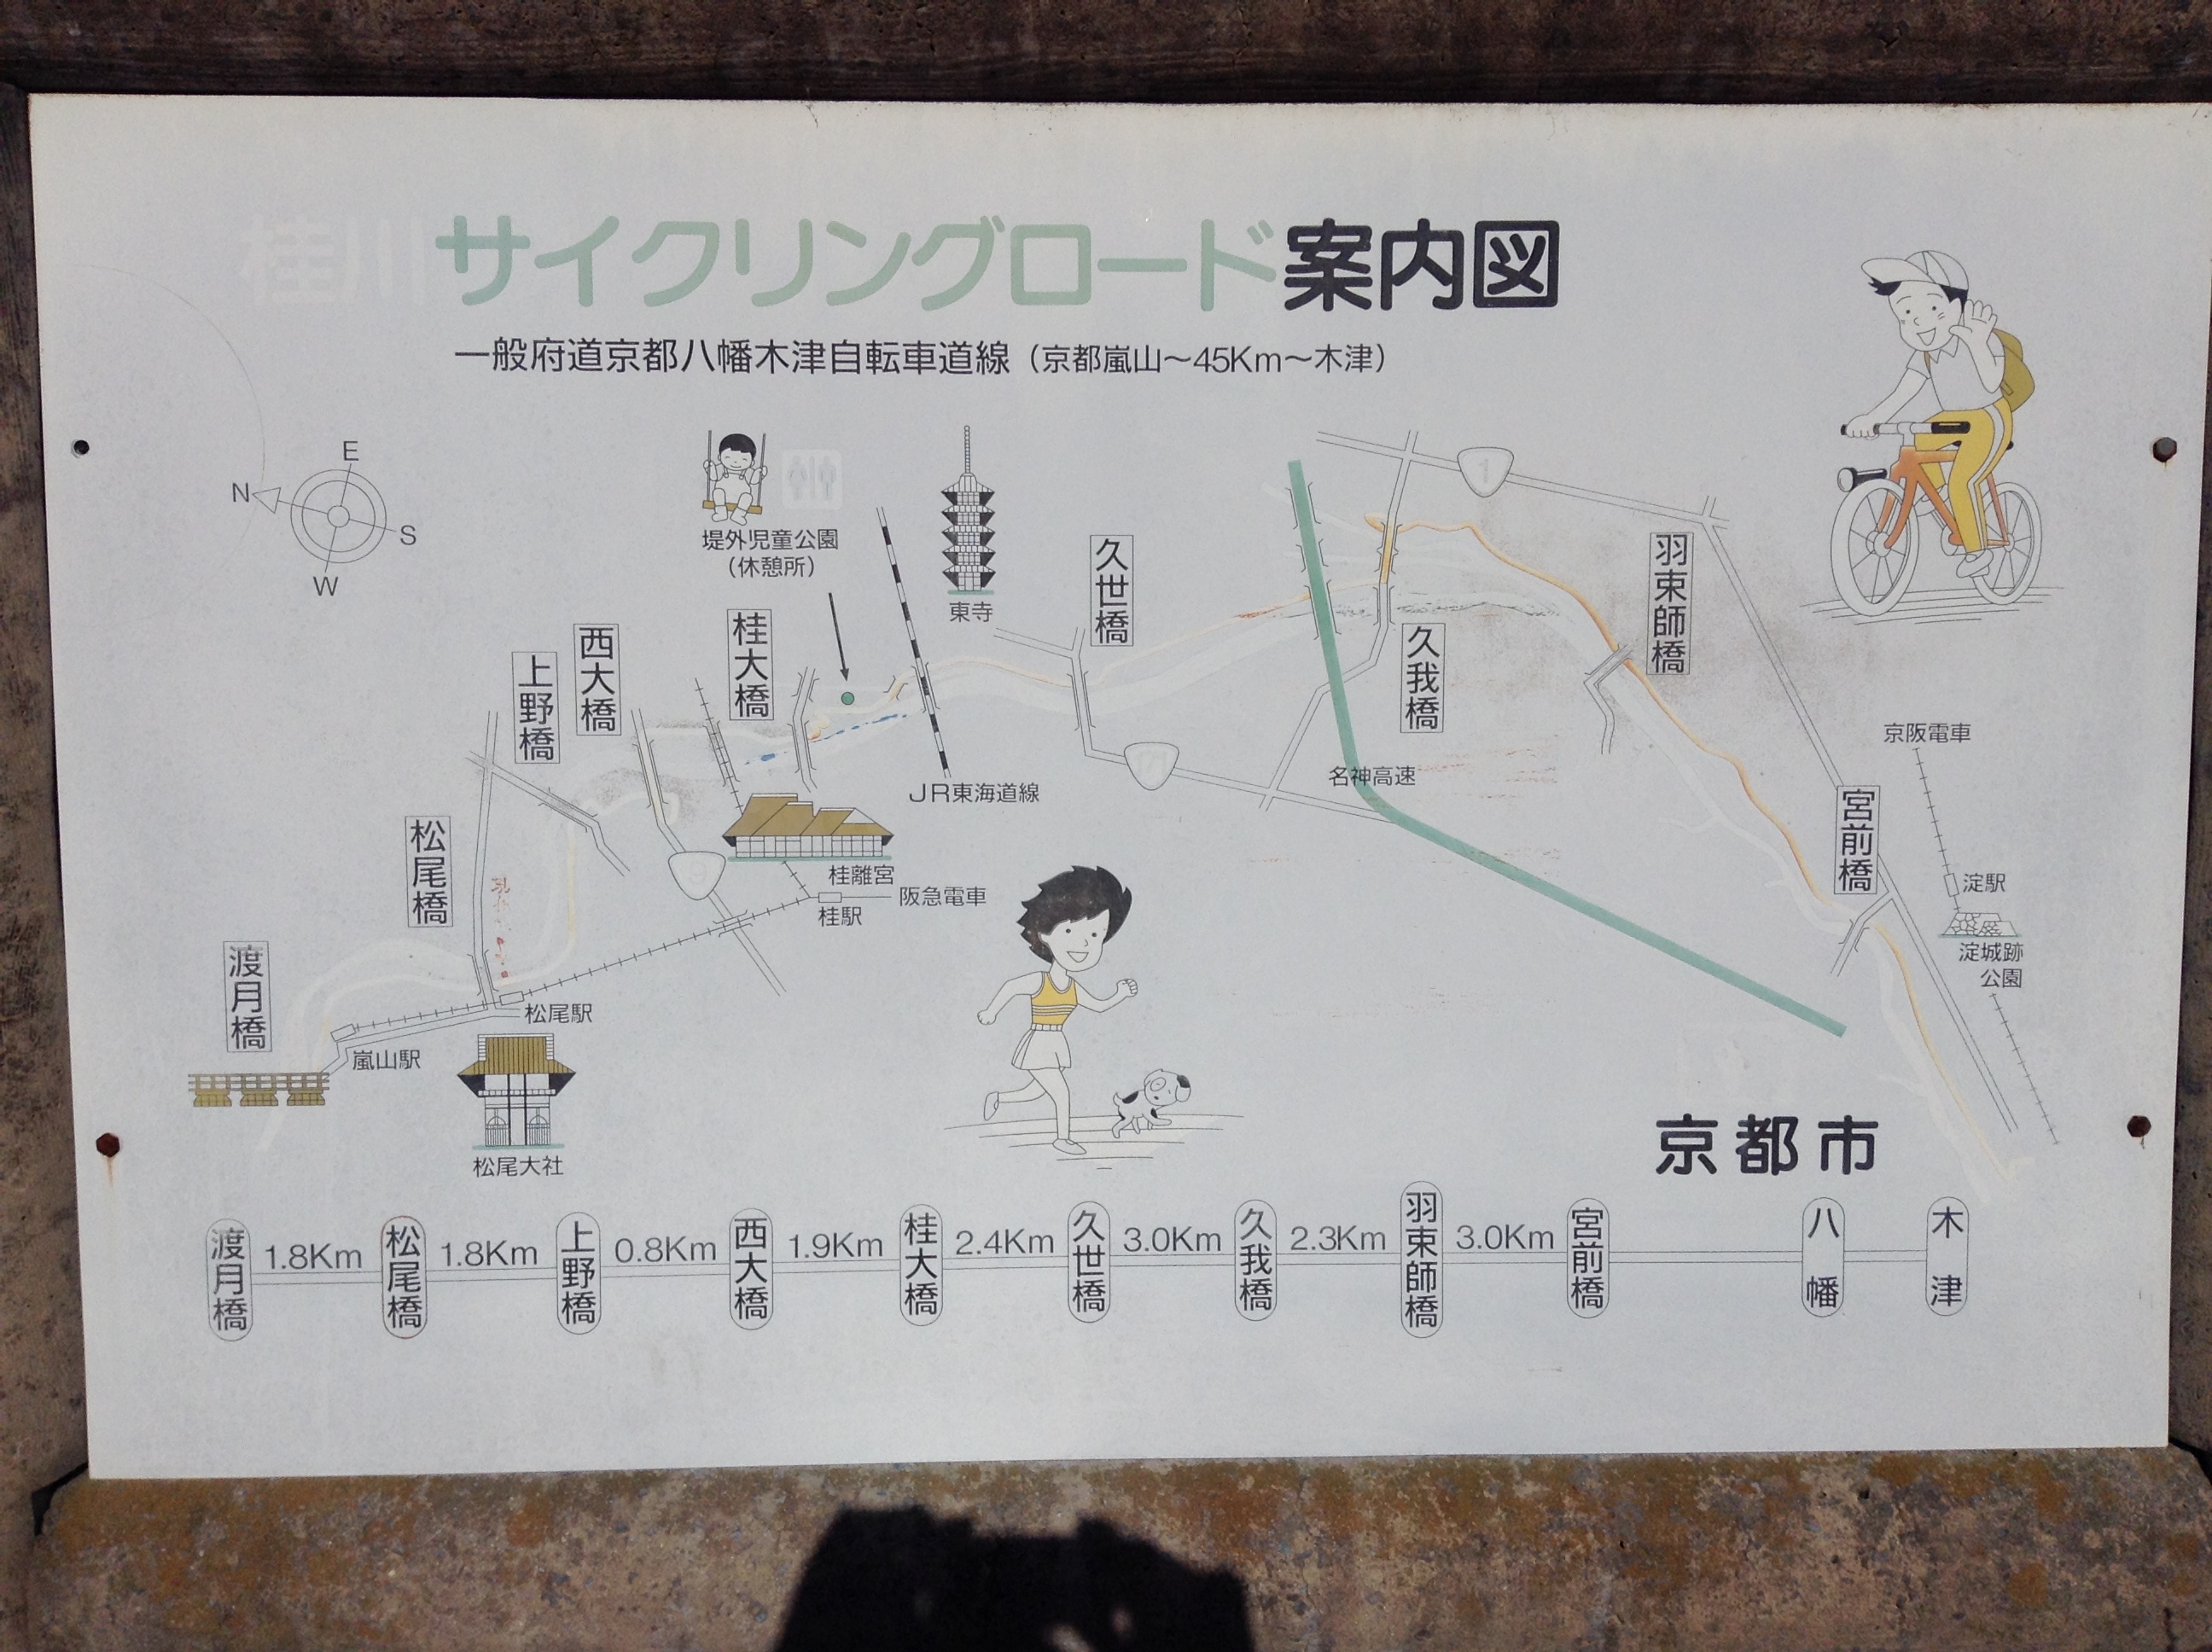 桂川サイクリングロード案内図
一般府道京都八幡木津自転車道線（京都嵐山～45Km～木津）
N
E
S
W
堤外児童公園
（休憩所）
東寺
1
久世橋
羽束師橋
桂大橋
西大橋
上野橋
久我橋
京阪電車
名神高速
JR東海道線
171
宮前橋
松尾橋
9
桂離宮
桂駅
阪急電車
淀駅
淀城跡
公園
渡月橋
松尾駅
嵐山駅
松尾大社
京都市
渡月橋 1.8Km 松尾橋 1.8Km 上野橋 0.8Km 西大橋 1.9Km 桂大橋 2.4Km 久世橋 3.0Km 久我橋 2.3Km 羽束師橋 3.0Km 宮前橋 八幡 木津